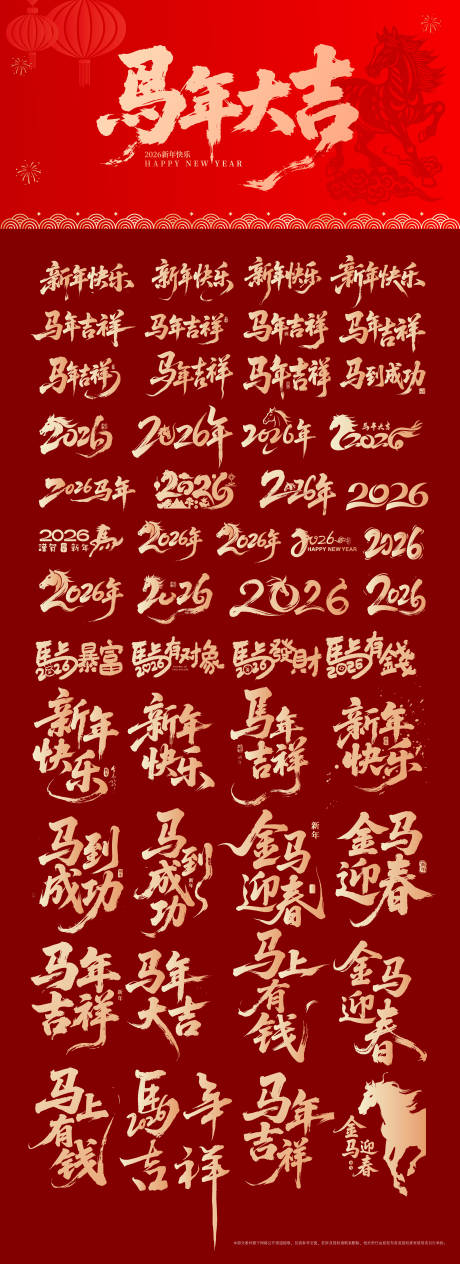 馬年大吉
2026新年快乐
HAPPY NEW YEAR
新年快乐 新年快乐 新年快乐 新年快乐
马年吉祥 马年吉祥 马年吉祥 马年吉祥
马年吉祥 马年吉祥 马年吉祥 马到成功
2026 2026年 2026年 马年大吉 2026
2026马年 2026 2026年 2026
2026 謹賀新年 馬 2026年 2026年 2026 HAPPY NEW YEAR 2026
2026年 2026 2026 2026
馬上暴富 2026 馬上有对象 2026 馬上發財 2026 馬上有錢 2026
新年快乐 新年快乐 马年吉祥 新年快乐
马到成功 马到成功 金马迎春 新年 金马迎春
马年吉祥 马年大吉 马上有钱 金马迎春
马上有钱 馬年吉祥 2026 马年吉祥 金马迎春